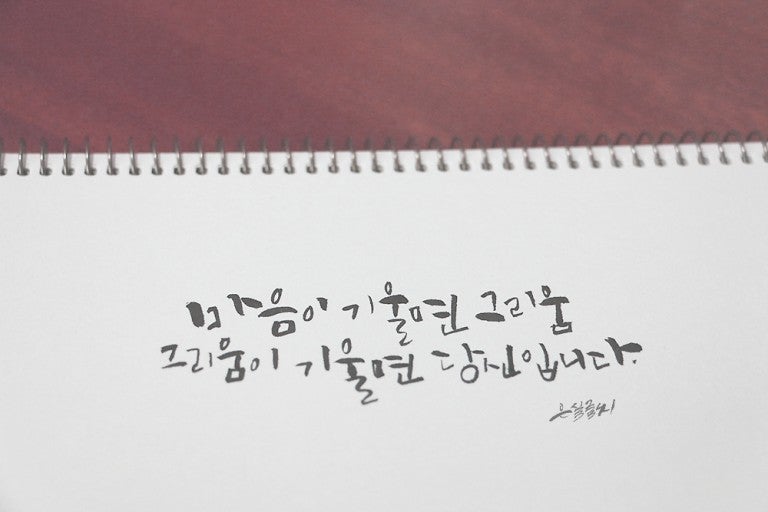 마음이 기울면 그리움
그리움이 기울면 당신입니다.
은실글씨